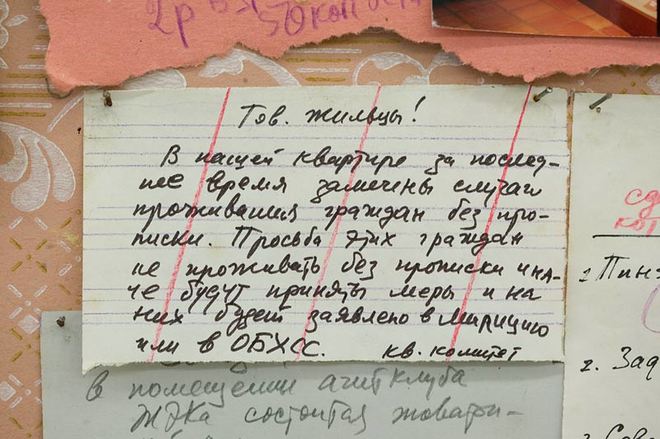 2р
50 коп
Тов. жильцы!
В нашей квартире за послед-
нее время замечены случаи
проживания граждан без про-
писки. Просьба этих граждан
не проживать без прописки ина-
че будут приняты меры и на
них будет заявлено в милицию
или в ОБХСС. кв. комитет
в помещении агитклуба
ЖЭКа состоится товари-